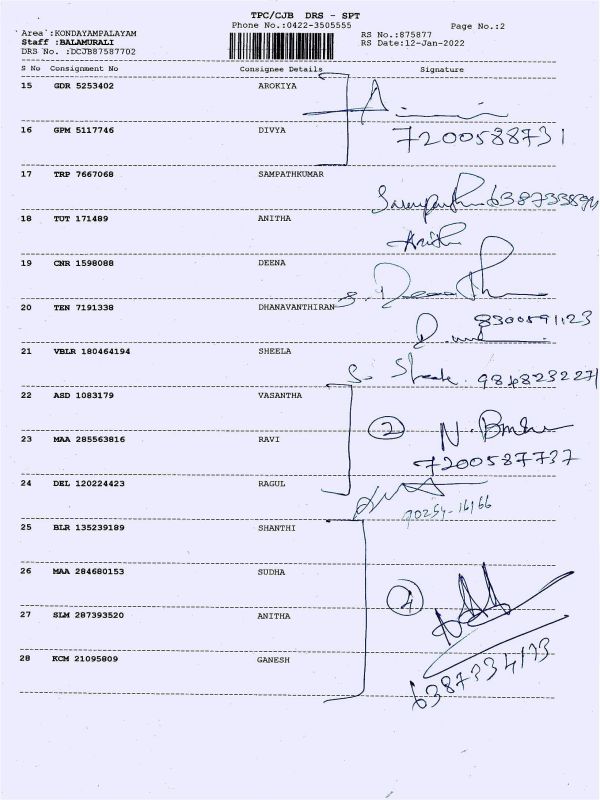 TPC/CJB DRS - SPT
Phone No.:0422-3505555
Page No.:2
Area :KONDAYAMPALAYAM
RS No.:875877
Staff :BALAMURALI
RS Date:12-Jan-2022
DRS No. :DCJB87587702
S No Consignment No Consignee Details Signature
15 GDR 5253402 AROKIYA
16 GPM 5117746 DIVYA
7200588731
17 TRP 7667068 SAMPATHKUMAR
18 TUT 171489 ANITHA
Anitha
19 CNR 1598088 DEENA
20 TEN 7191338 DHANAVANTHIRAN
8300591123
21 VBLR 180464194 SHEELA
S. Sheela. 9848232271
22 ASD 1083179 VASANTHA
2
23 MAA 285563816 RAVI
7200587737
24 DEL 120224423 RAGUL
70254-16166
25 BLR 135239189 SHANTHI
26 MAA 284680153 SUDHA
4
27 SLM 287393520 ANITHA
28 KCM 21095809 GANESH
6387334173